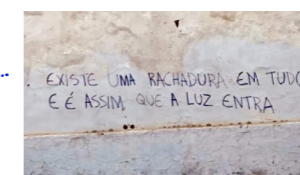 EXISTE UMA RACHADURA EM TUDO
E É ASSIM QUE A LUZ ENTRA